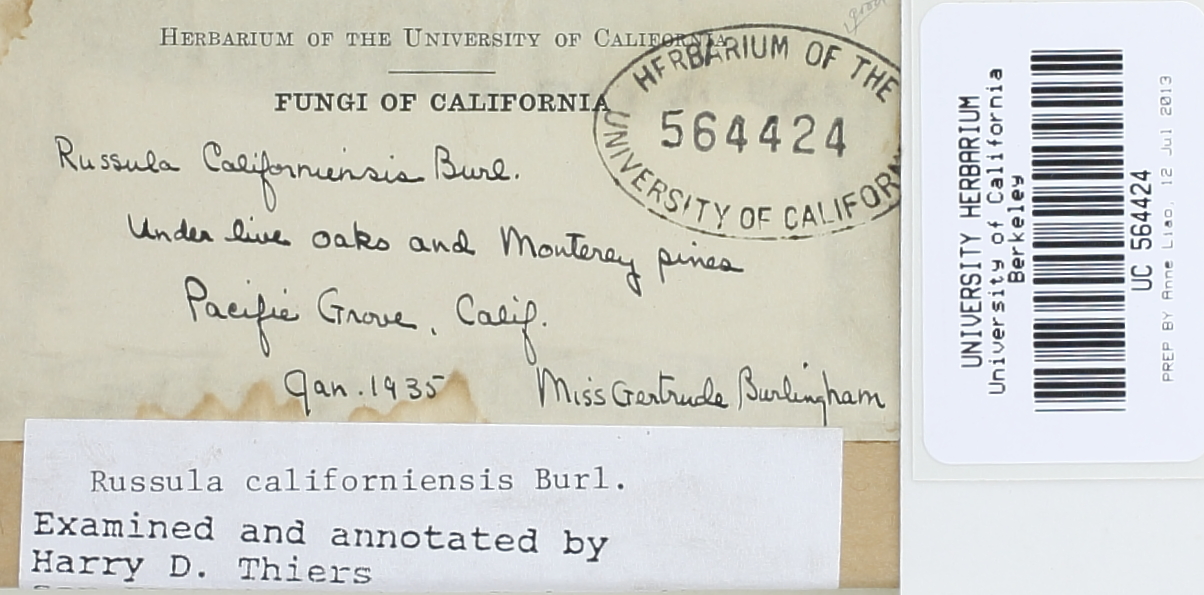 HERBARIUM OF THE UNIVERSITY OF CALIFORNIA
FUNGI OF CALIFORNIA
HERBARIUM OF THE
564424
UNIVERSITY OF CALIFORN
Russula Californiensis Burl.
Under live oaks and Monterey pines
Pacific Grove, Calif.
Jan. 1935 Miss Gertrude Burlingham
Russula californiensis Burl.
Examined and annotated by
Harry D. Thiers
UNIVERSITY HERBARIUM
University of California
Berkeley
UC 564424
PREP BY Anne Liao, 12 Jul 2013